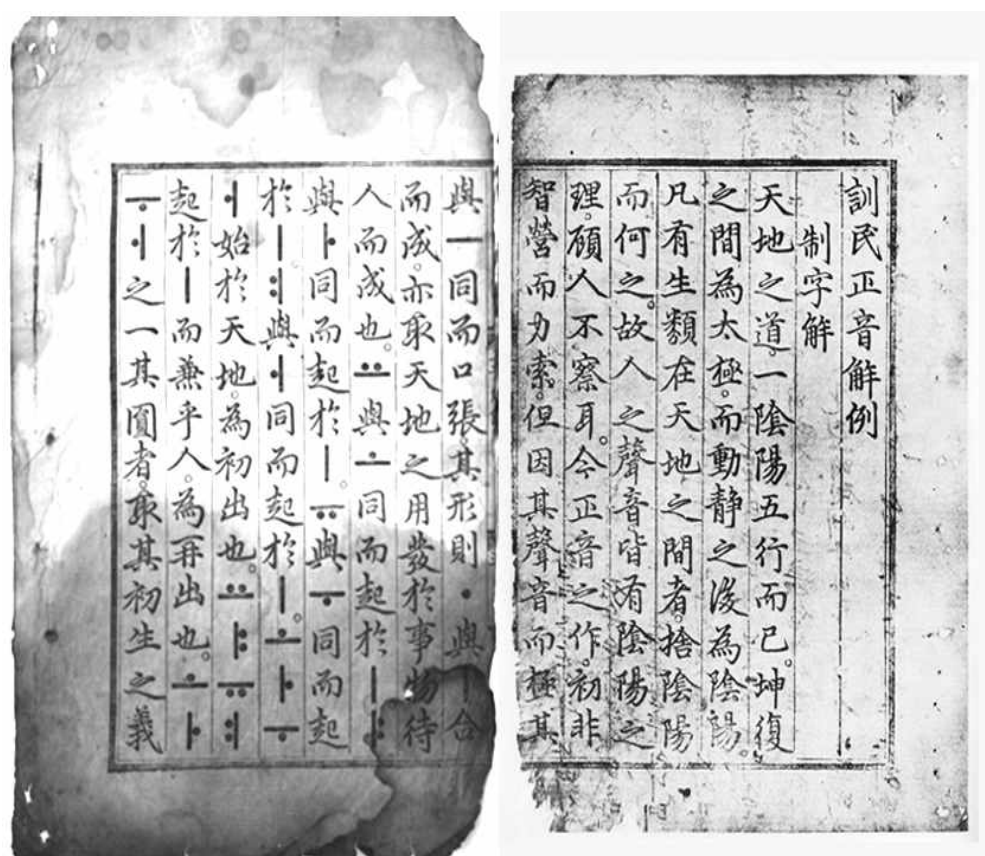 訓民正音解例
制字解
天地之道。一陰陽五行而已。坤復
之間為太極。而動靜之後為陰陽。
凡有生類在天地之間者。捨陰陽
而何之。故人之聲音皆有陰陽之
理。顧人不察耳。今正音之作。初非
智營而力索。但因其聲音而極其
與ㅡ同而口張。其形則ㆍ與ㅣ合
而成。亦取天地之用發於事物待
人而成也。ㅛ與ㅗ同而起於ㅣ。ㅑ
與ㅏ同而起於ㅣ。ㅠ與ㅜ同而起
於ㅣ。ㅕ與ㅓ同而起於ㅣ。ㅗㅏㅜ
ㅓ始於天地。為初出也。ㅛㅑㅠㅕ
起於ㅣ而兼乎人。為再出也。ㅗㅏ
ㅜㅓ之一其圓者。取其初生之義